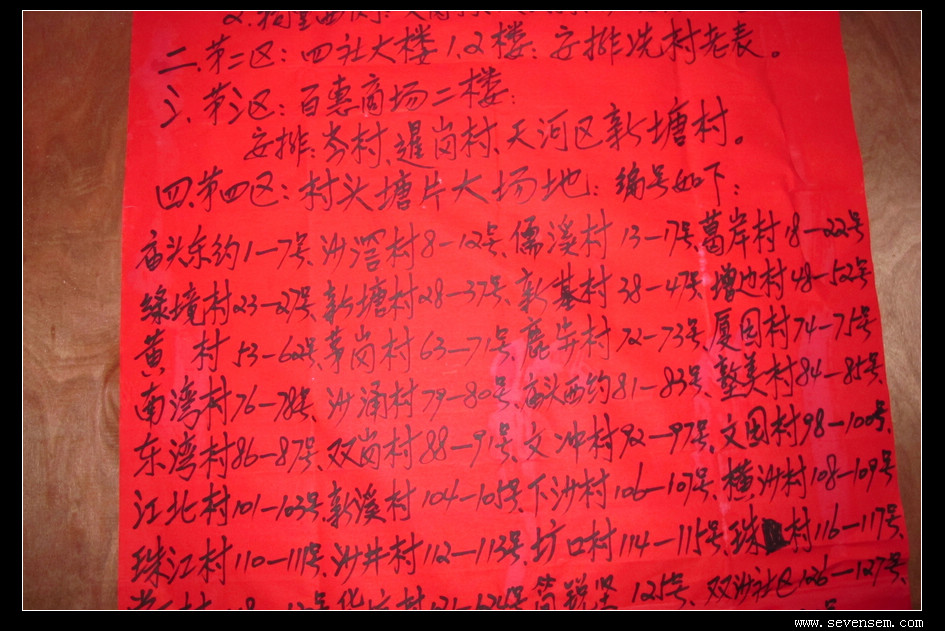 二、第二区：四社大楼1.2楼：安排冼村老表。
三、第三区：百惠商场二楼：
安排：岑村、暹岗村、天河区新塘村。
四、第四区：村头塘片大场地：编号如下：
庙头东约1—7号、沙滘村8—12号、儒溪村13—17号、葛岸村18—22号
缘境村23—27号、新塘村28—37号、新基村38—47号、增边村48—52号
黄村53—62号、茅岗村63—71号、鹿步村72—73号、厦园村74—75号
南湾村76—78号、沙涌村79—80号、庙头西约81—83号、塾美村84—85号、
东湾村86—87号、双岗村88—91号、文冲村92—97号、文园村98—100号、
江北村101—103号、新溪村104—105号、下沙村106—107号、横沙村108—109号
珠江村110—111号、沙井村112—113号、坊口村114—115号、珠村116—117号、
125号、双沙社区126—127号、
www.sevensem.com